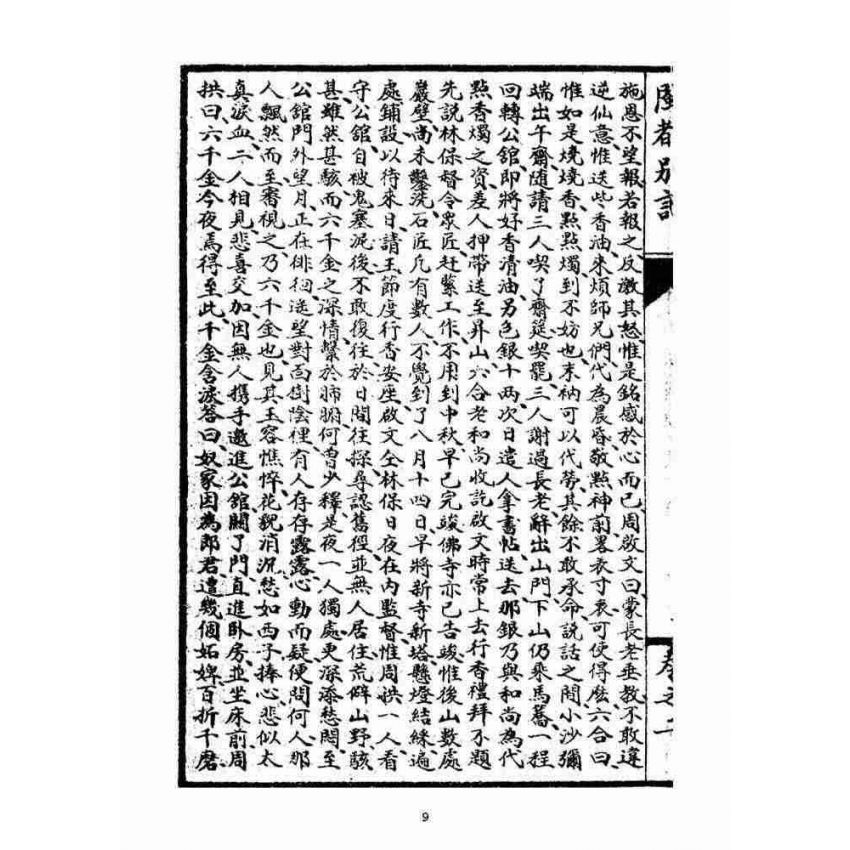 閩都別記
卷之一
施恩不望報若報之反激其怒惟是銘感於心而已周啟文曰蒙長老垂教不敢違
逆仙意惟送些香油來煩師兄們代為晨昏敬點神前畧表寸衷可使得麽六合曰
惟如是燒燒香點點燭到不妨也末衲可以代勞其餘不敢承命說話之間小沙彌
端出午齋隨請三人喫了齋筵喫罷三人謝過長老辭出山門下山仍乘馬驀一程
回轉公舘即將好香清油另色銀十兩次日遣人拿書帖送去那銀乃與和尚為代
點香燭之資差人押帶送至昇山六合老和尚收訖啟文時常上去行香禮拜不題
先說林保督令眾匠赶緊工作不用到中秋早已完竣佛寺亦已告竣惟後山數處
巖壁尚未鑿洗石匠凢有數人不覺到了八月十四日早將新寺新塔懸燈結綵遍
處鋪設以待來日請王節度行香安座啟文仝林保日夜在內監督惟周拱一人看
守公舘自被鬼塞泥後不敢復往於日間往探尋認舊徑並無人居住荒僻山野駭
甚雖然甚駭而六千金之深情繫於肺腑何曾少釋是夜一人獨處更深添愁悶至
公舘門外望月正在徘徊遥望對面樹陰裡有人存存露露心動而疑便問何人那
人飄然而至審視之乃六千金也見其玉容憔悴花貌消況愁如西子捧心悲似太
真淚血二人相見悲喜交加因無人携手邀進公舘關了門直進臥房並坐床前周
拱曰六千金今夜焉得至此千金含淚答曰奴家因為郎君遭幾個妬婢百折千磨
9